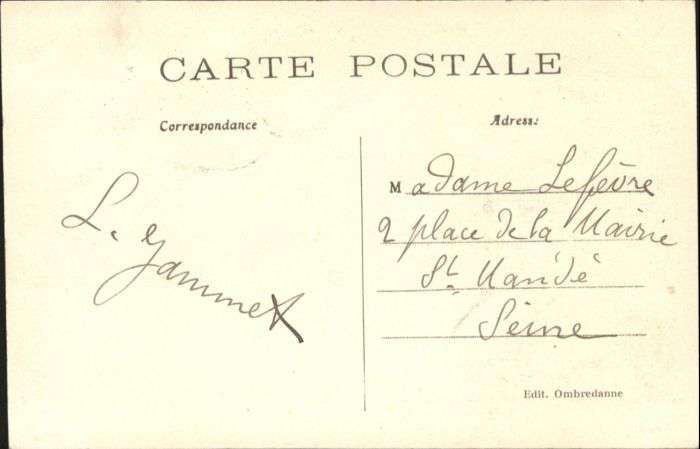 CARTE POSTALE
Correspondance
Adresse
L. Jammet
Madame Lefèvre
2 place de la Mairie
St. Mandé
Seine
Edit. Ombredanne